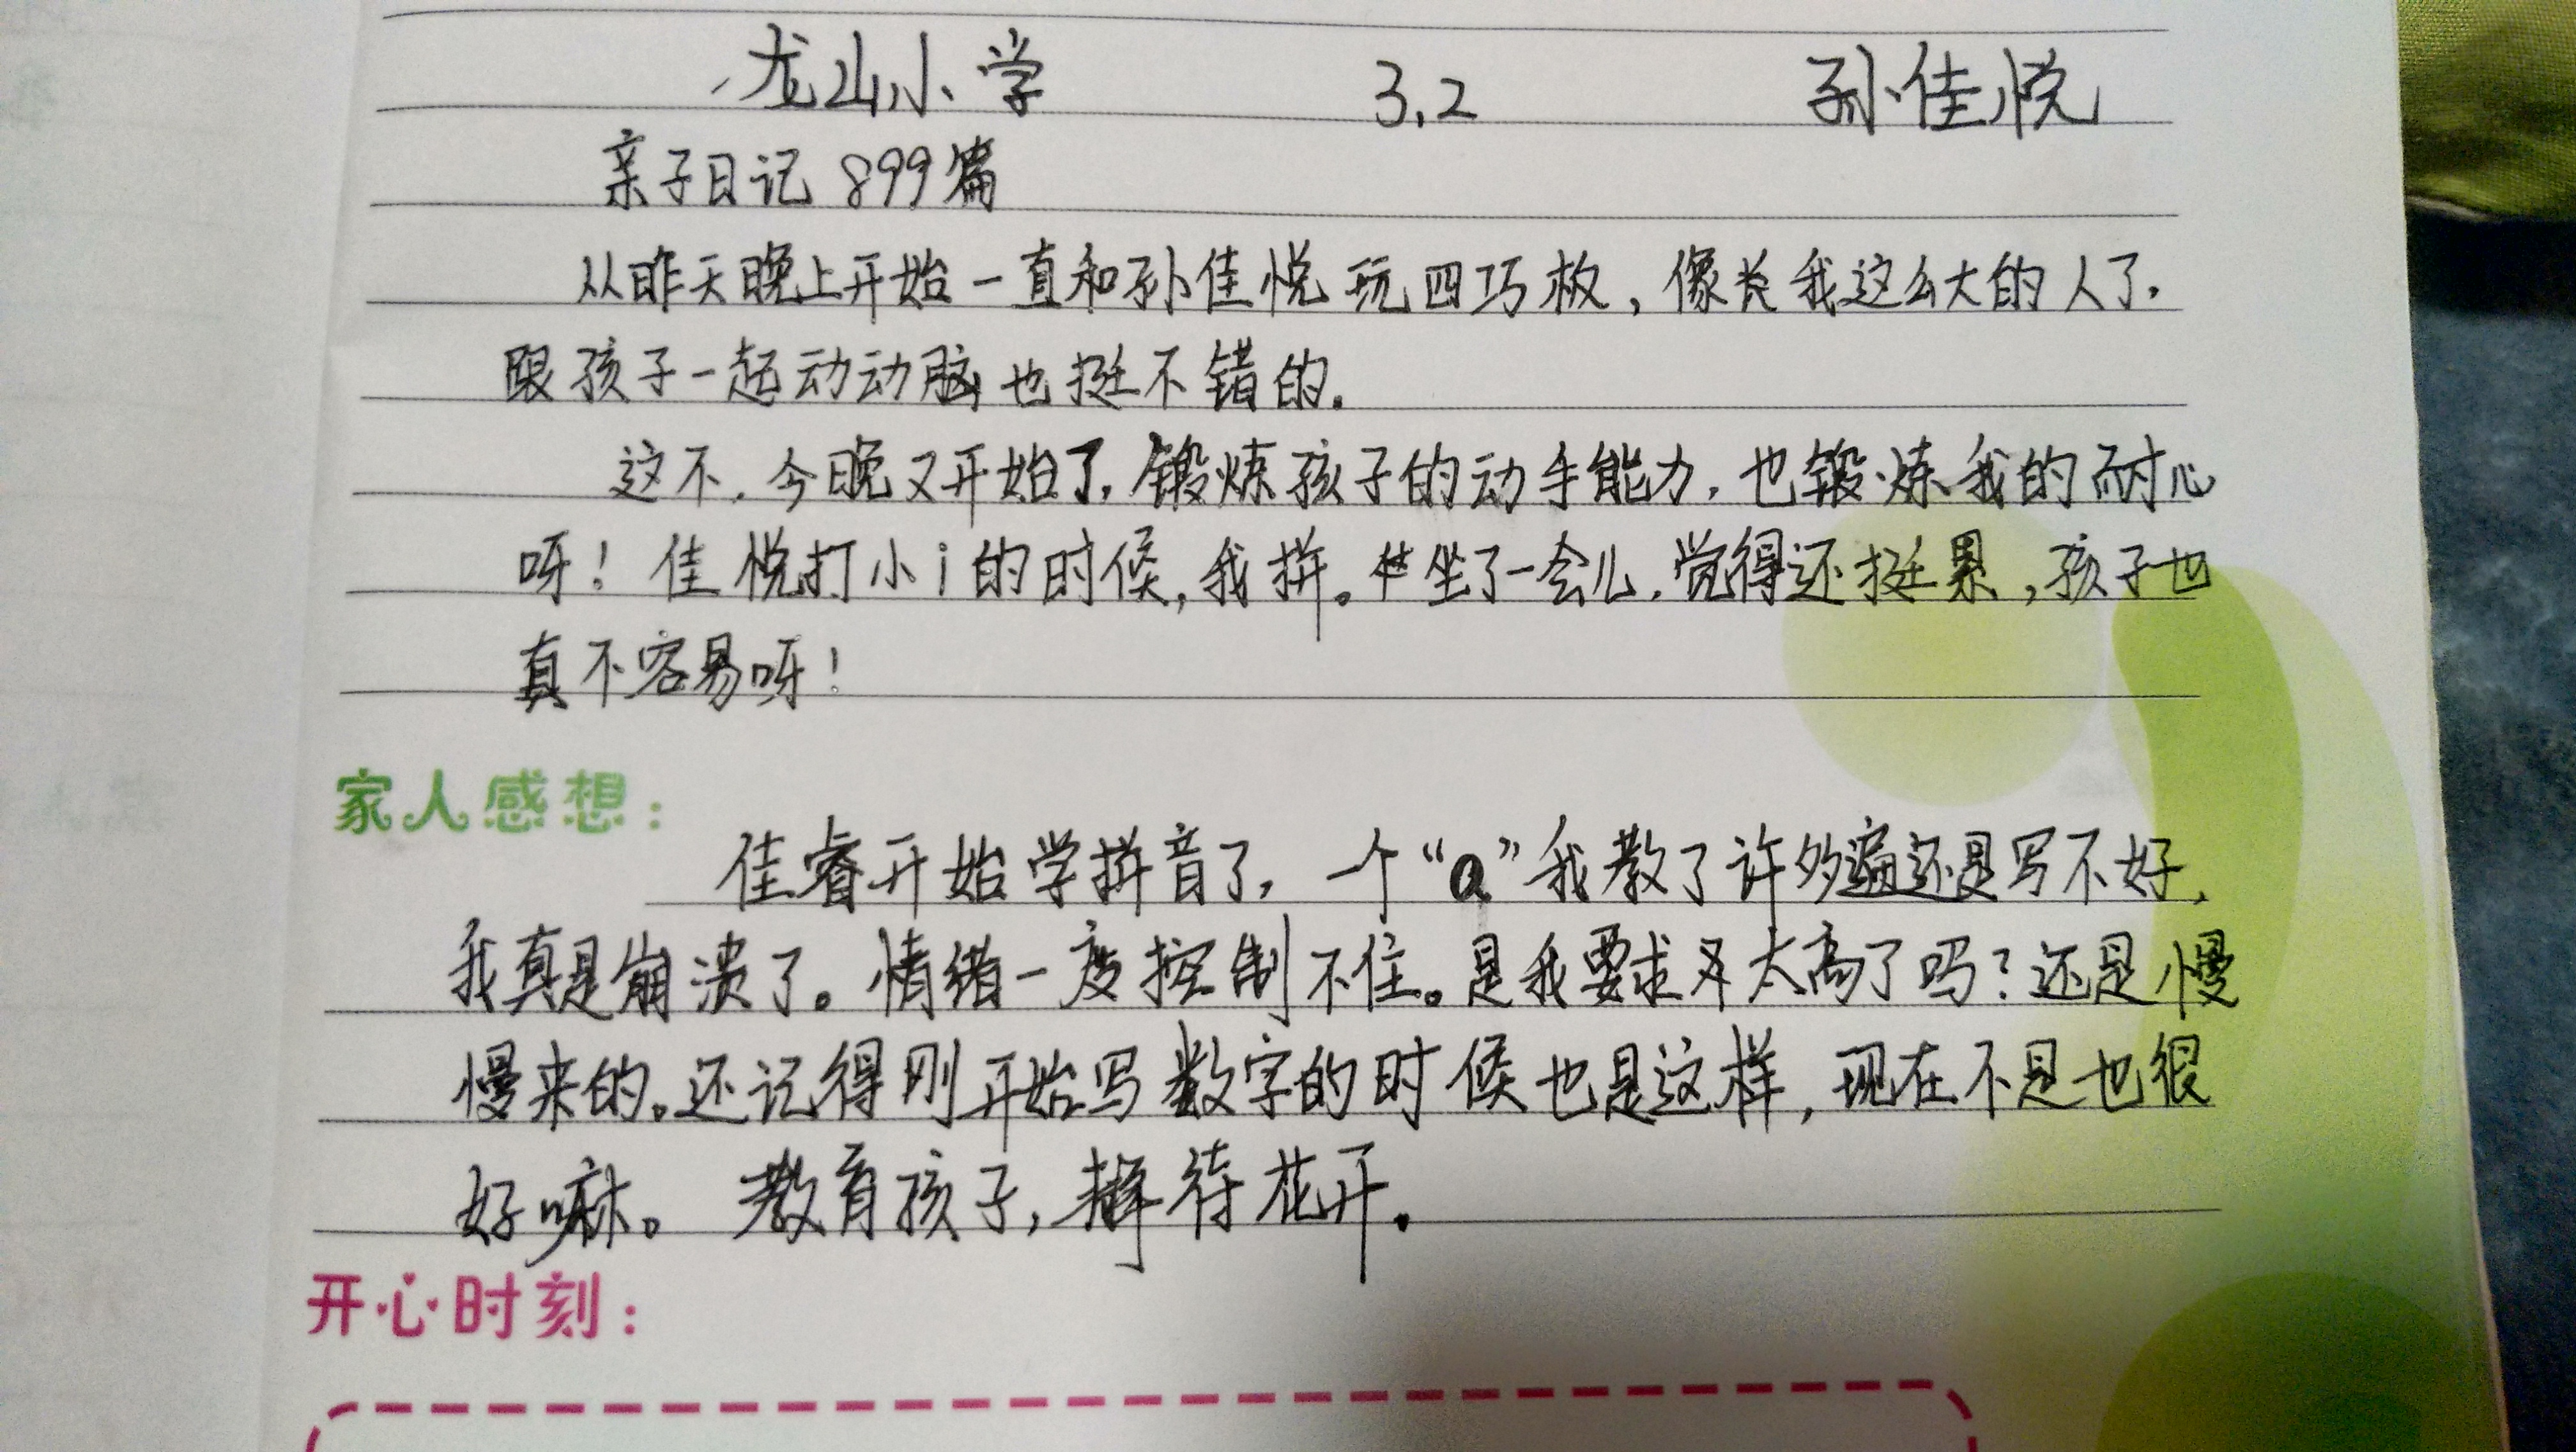 龙山小学 3.2 孙佳悦
亲子日记 899篇
从昨天晚上开始一直和孙佳悦玩四巧板,像长我这么大的人了.
跟孩子一起动动脑也挺不错的。
这不.今晚又开始了.锻炼孩子的动手能力,也锻炼我的耐心
呀!佳悦打小i的时候,我拼。坐了一会儿.觉得还挺累,孩子也
真不容易呀!
家人感想:
佳睿开始学拼音了,一个“a”我教了许多遍还是写不好,
我真是崩溃了。情绪一度控制不住。是我要求太高了吗?还是慢
慢来的。还记得刚开始写数字的时候也是这样,现在不是也很
好嘛。教育孩子,静待花开。
开心时刻: